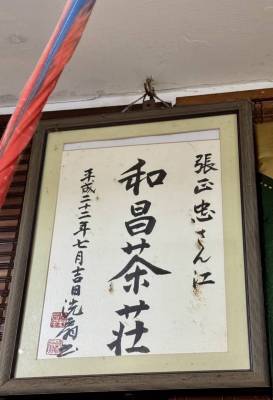 張正忠さん江
和昌茶荘
平成二十二年七月吉日